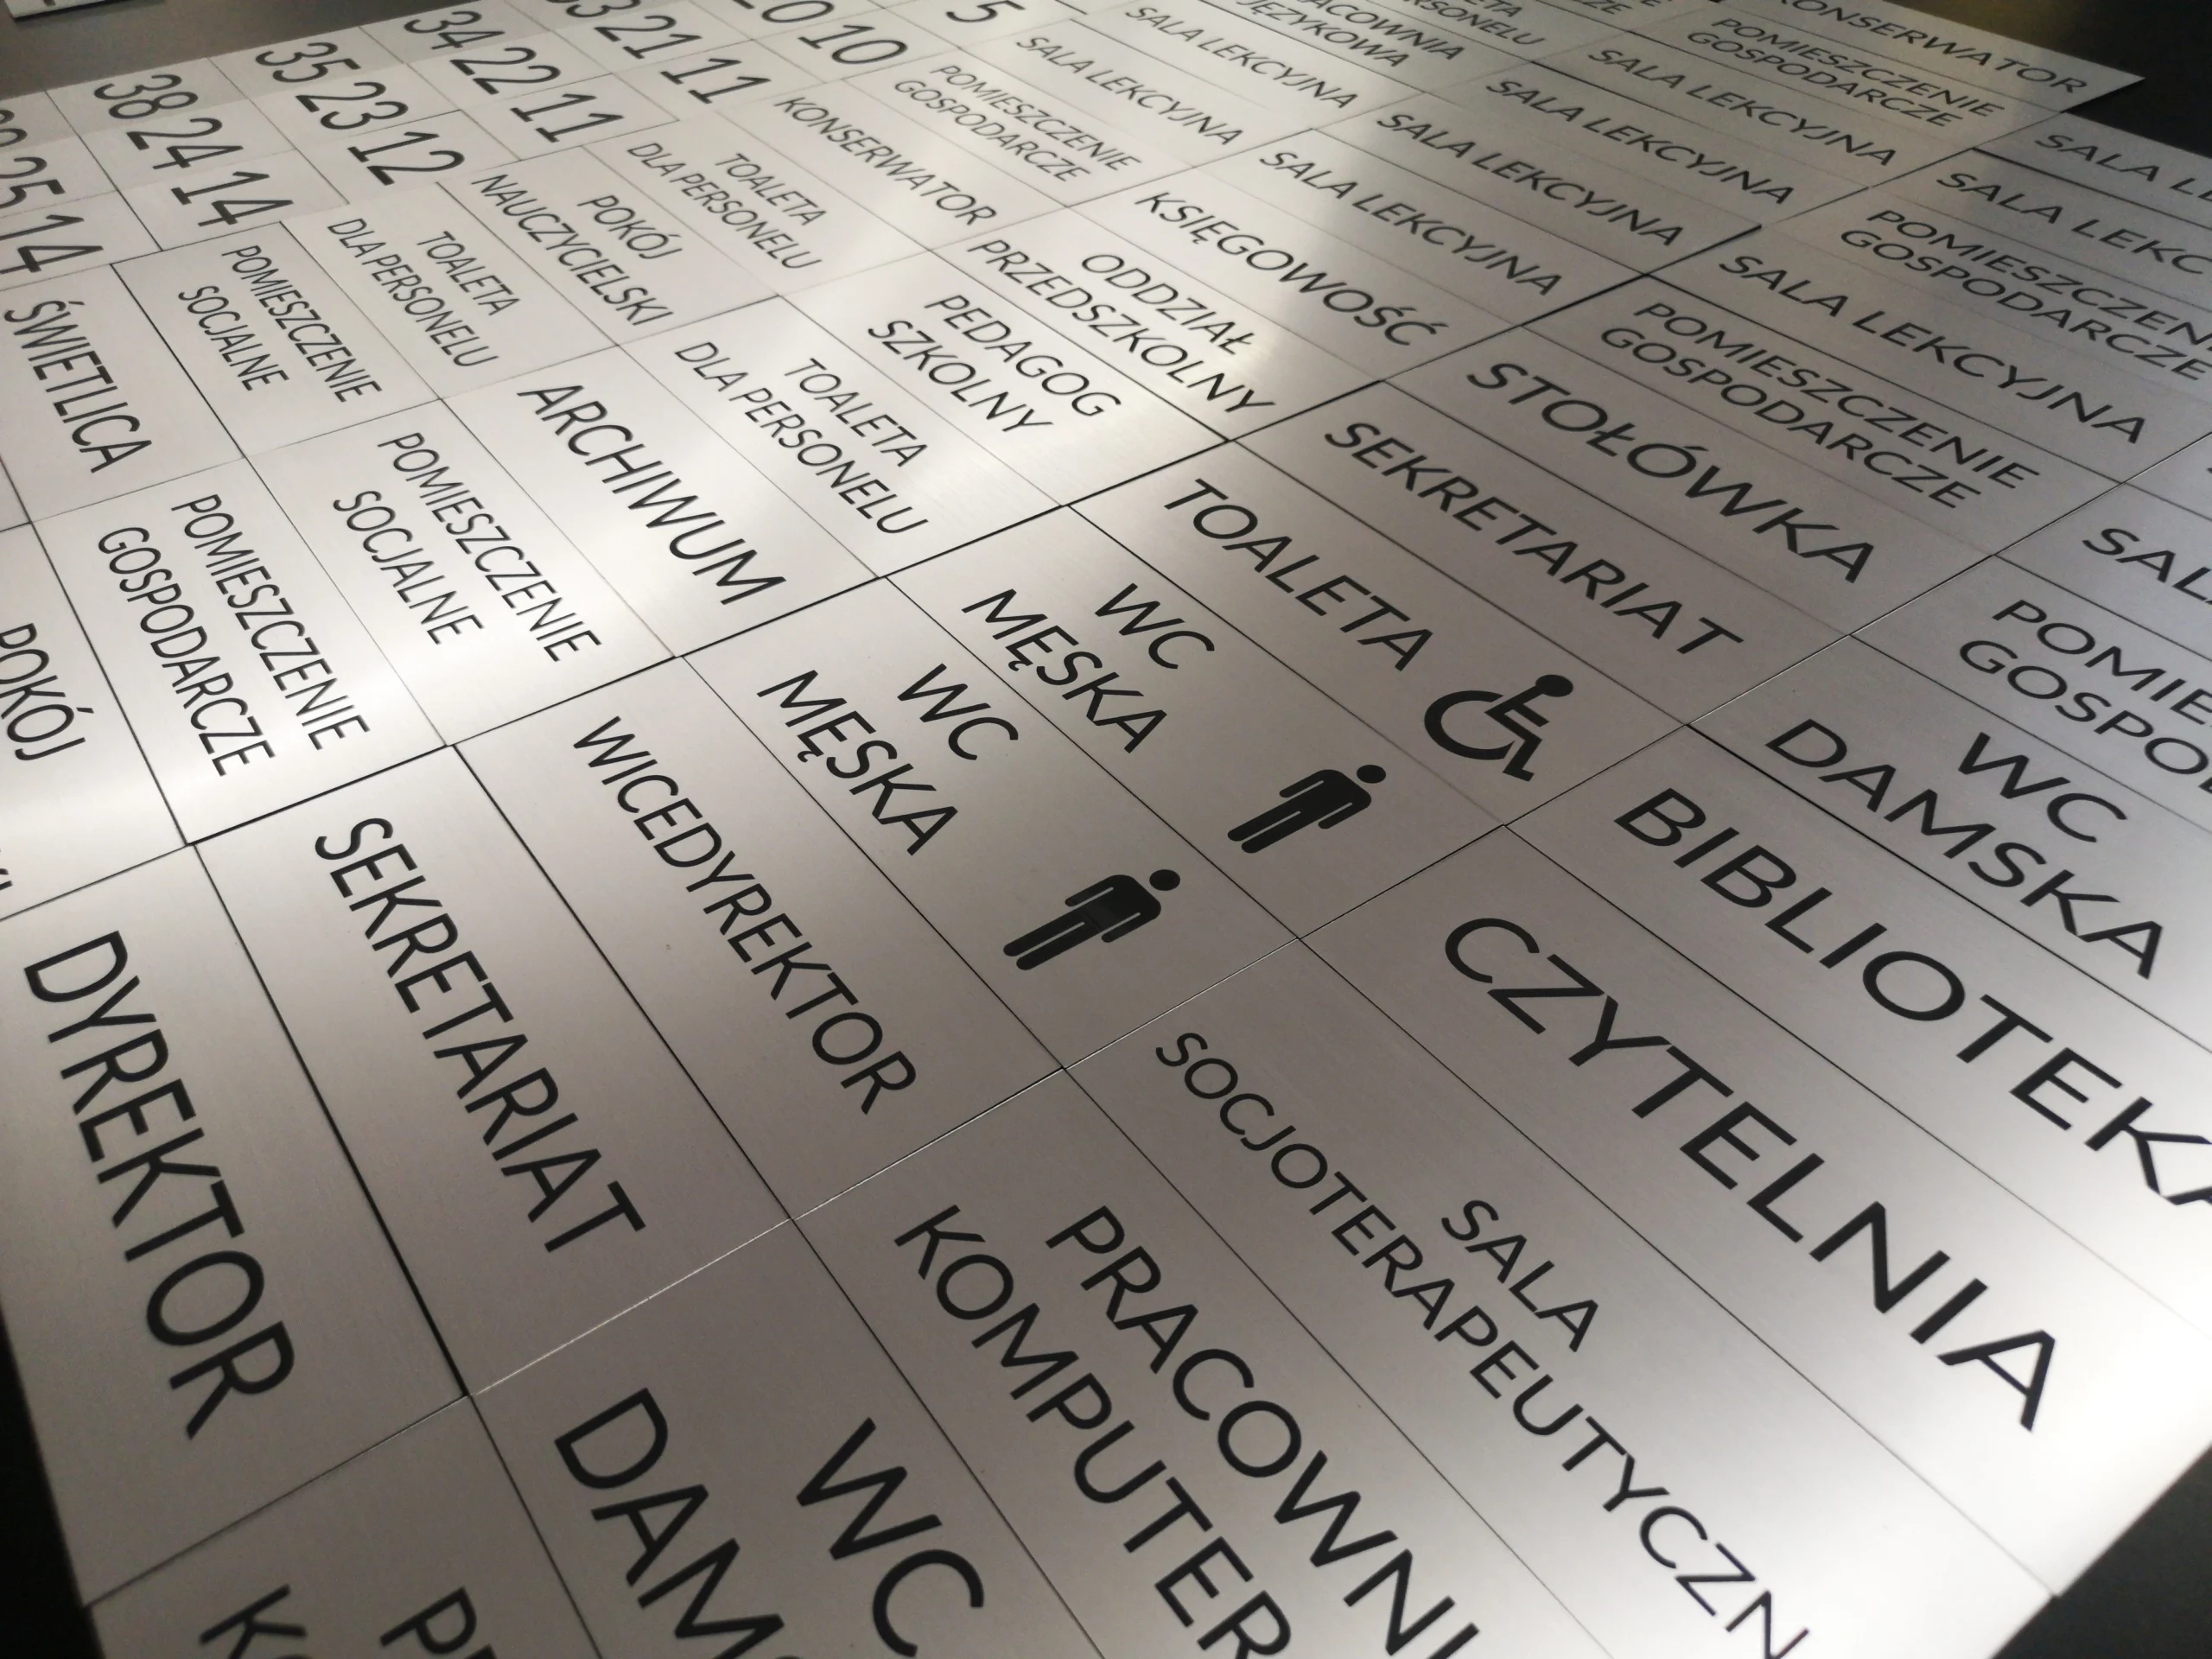 38 24 14
35 23 12
34 22 11
21 11
10
5
25 14
ŚWIETLICA
POMIESZCZENIE
SOCJALNE
TOALETA
DLA PERSONELU
POKÓJ
NAUCZYCIELSKI
TOALETA
DLA PERSONELU
KONSERWATOR
POMIESZCZENIE
GOSPODARCZE
SALA LEKCYJNA
SALA LEKCYJNA
JĘZYKOWA
POMIESZCZENIE
GOSPODARCZE
KONSERWATOR
POKÓJ
POMIESZCZENIE
GOSPODARCZE
POMIESZCZENIE
SOCJALNE
ARCHIWUM
TOALETA
DLA PERSONELU
PEDAGOG
SZKOLNY
ODDZIAŁ
PRZEDSZKOLNY
KSIĘGOWOŚĆ
SALA LEKCYJNA
SALA LEKCYJNA
SALA LEKCYJNA
SALA LEKCYJNA
DYREKTOR
SEKRETARIAT
WICEDYREKTOR
WC
MĘSKA
WC
MĘSKA
TOALETA
SEKRETARIAT
STOŁÓWKA
POMIESZCZENIE
GOSPODARCZE
SALA LEKCYJNA
POMIESZCZENI
GOSPODARCZE
SALA LEKC
SALA L
WC
DAMS
PRACOWNI
KOMPUTER
SALA
SOCJOTERAPEUTYCZN
CZYTELNIA
BIBLIOTEKA
WC
DAMSKA
POMIE
GOSPO
SAL